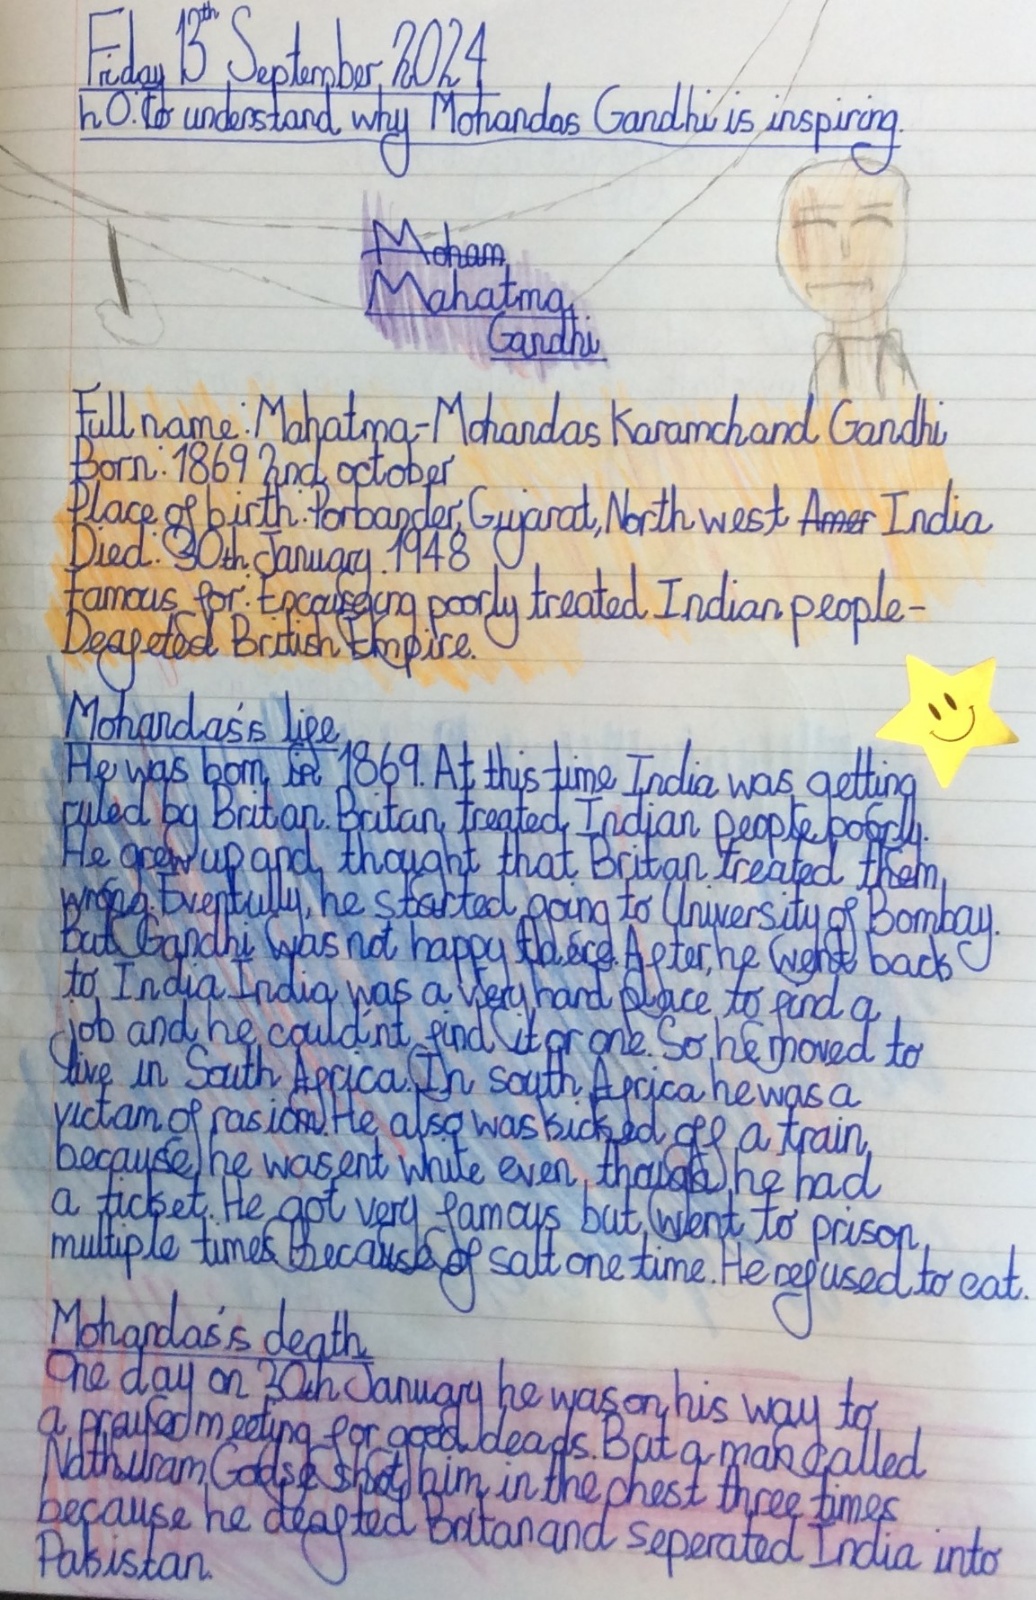 Friday 13th September 2024
LO: to understand why Mohandas Gandhi is inspiring.
Moham
Mahatma
Gandhi
Full name: Mahatma-Mohandas Karamchand Gandhi
Born: 1869 2nd october
Place of birth: Porbander, Gujarat, North west Amer India
Died: 30th January 1948
Famous for: poorly treated Indian people-
British Empire.
Mohandas's life
He was born in 1869. At this time India was getting
ruled by Britan. Britan treated Indian people poorly.
He grew up and thought that Britan treated them
wrong. Eventully, he started going to University of Bombay.
But Gandhi was not happy there. After, he went back
to India. India was a very hard place to find a
job and he could'nt find it or one. So he moved to
live in South Africa. In south Africa he was a
victam of rasism. He also was kicked off a train
because he wasent white even though he had
a ticket. He got very famous but went to prison
multiple times because of salt one time. He refused to eat.
Mohandas's death
One day on 30th January he was on his way to
a meeting for good deads. But a man called
Nathuram Godse shot him in the chest three times
because he deafted Britan and seperated India into
Pakistan.